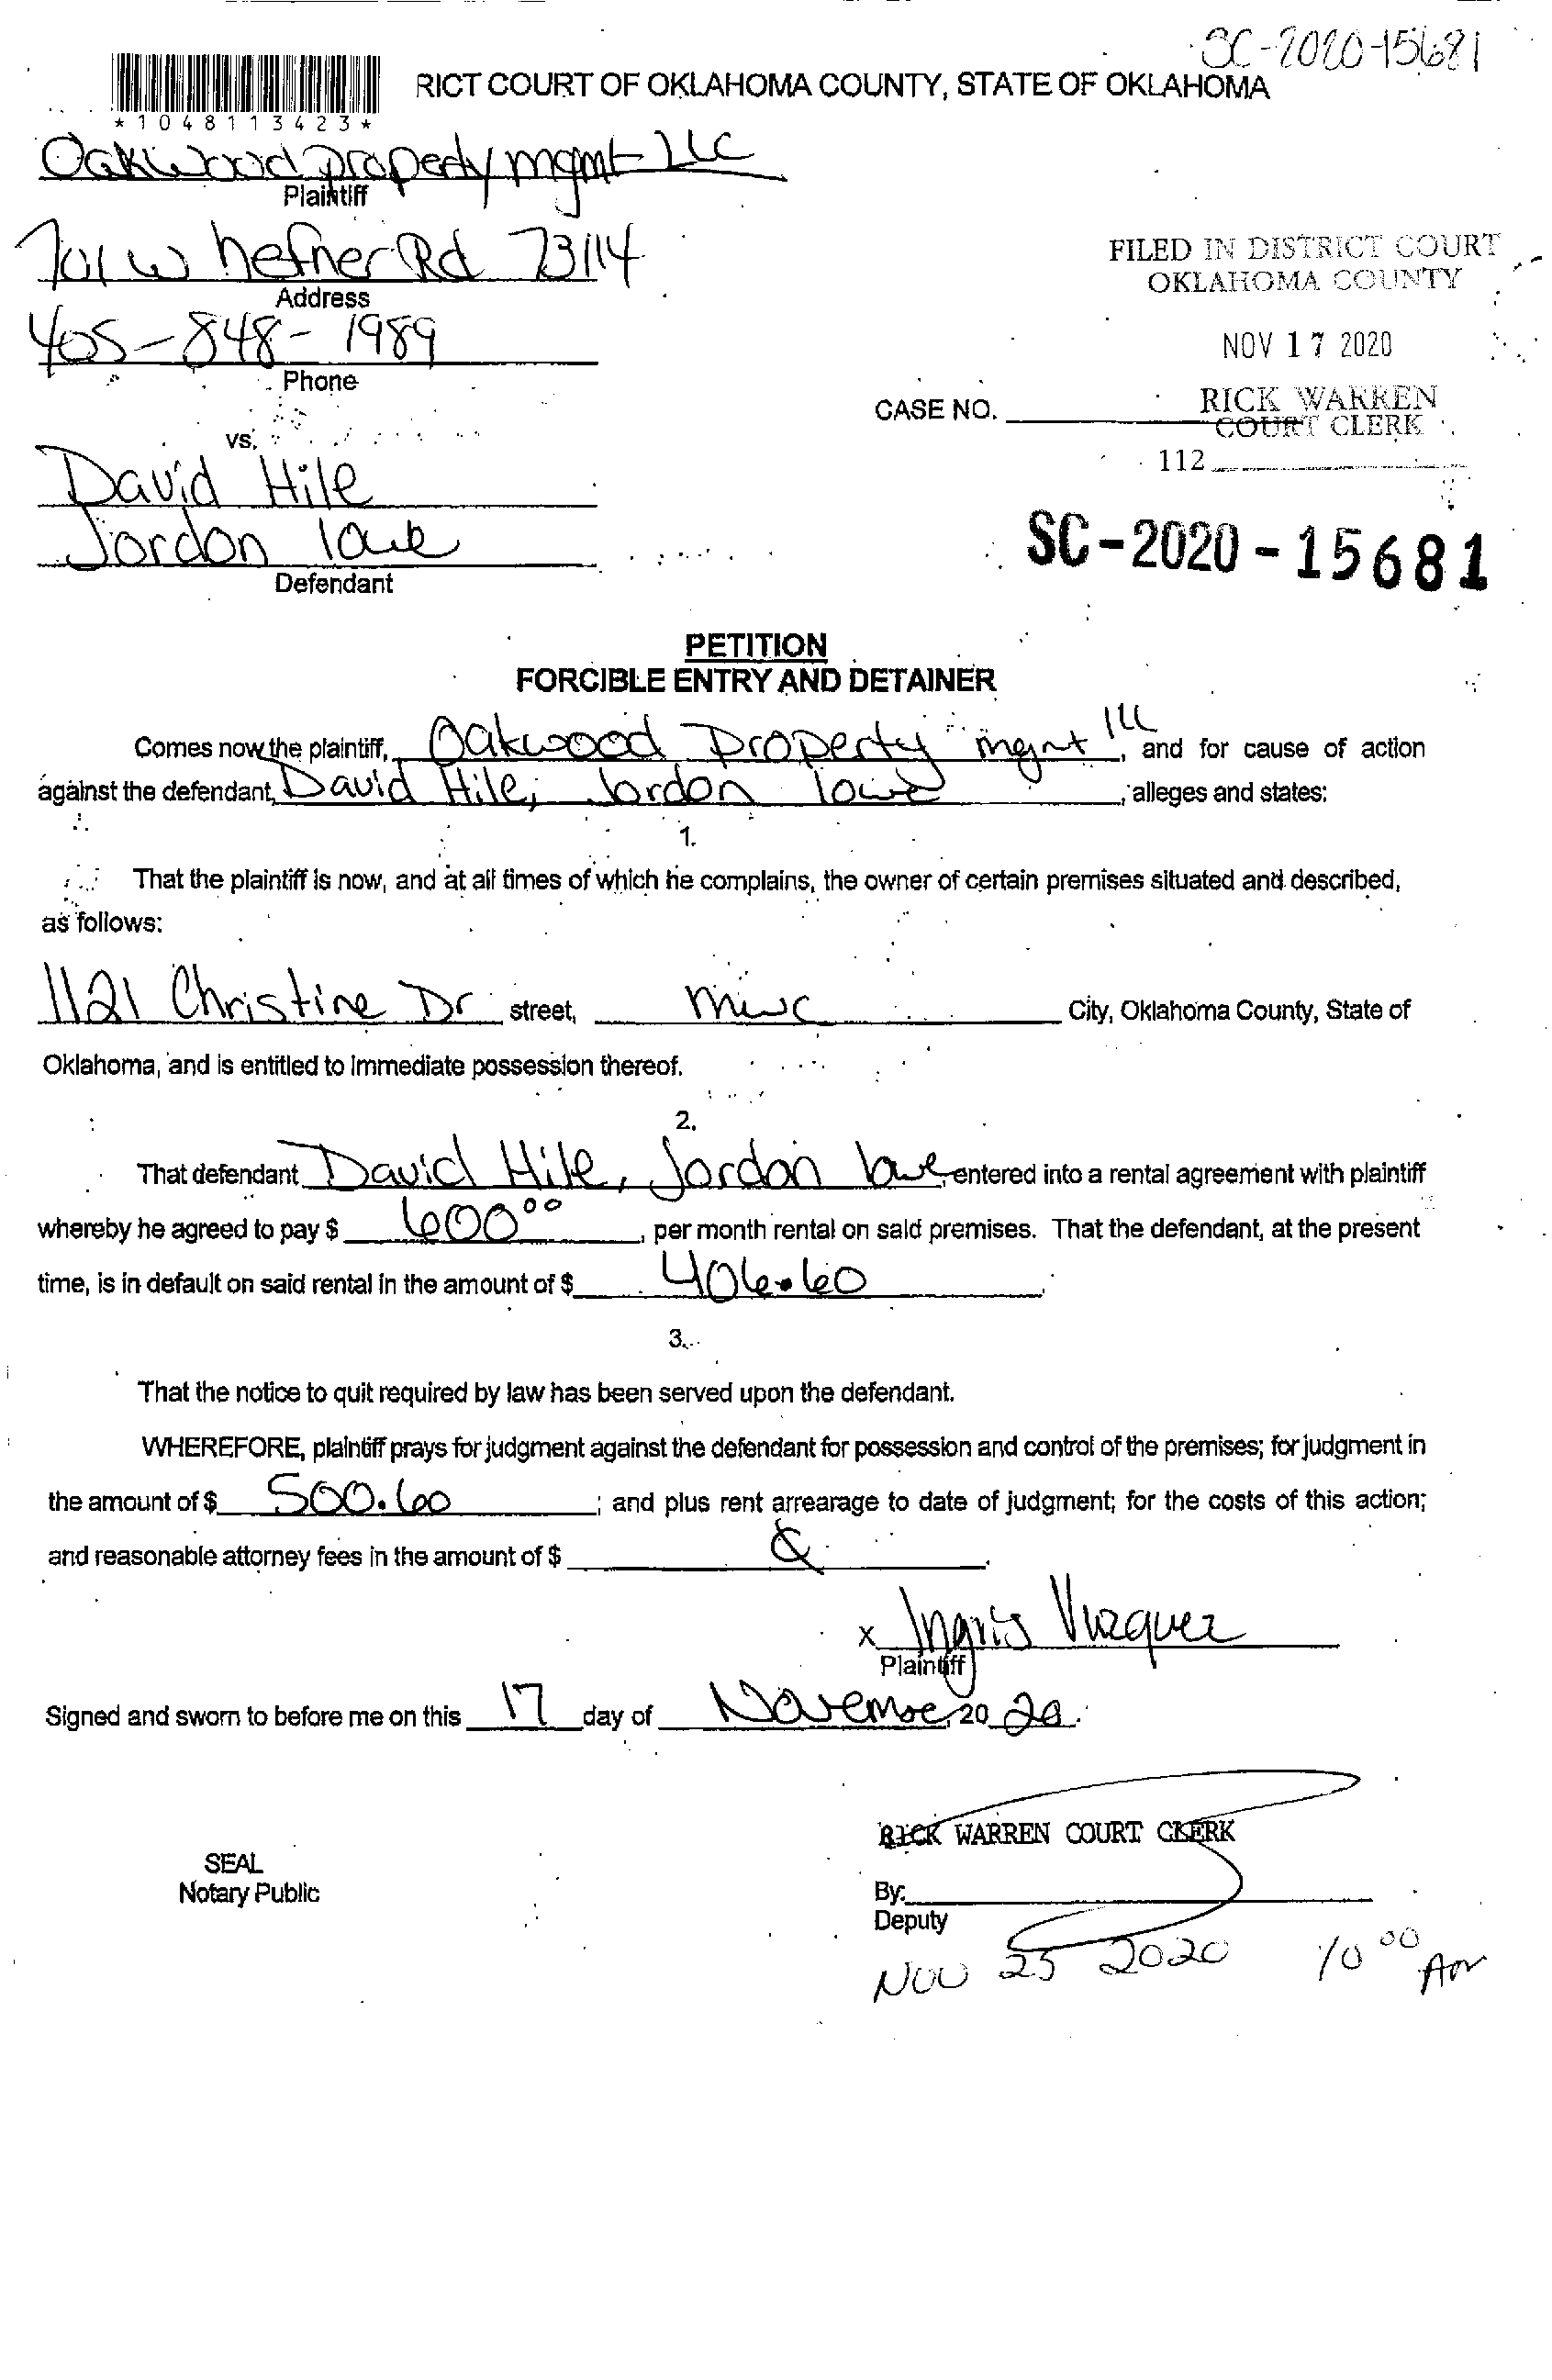 SC-2020-15681
RICT COURT OF OKLAHOMA COUNTY, STATE OF OKLAHOMA
*1048113423*
Oakwood property mgmt LLC
Plaintiff
701 W hefner Rd 73114
Address
FILED IN DISTRICT COURT
OKLAHOMA COUNTY
405-848-1989
Phone
NOV 17 2020
CASE NO.
RICK WARREN
COURT CLERK
vs.
112
David Hile
Jordon lowe
Defendant
SC-2020-15681
PETITION
FORCIBLE ENTRY AND DETAINER
Comes now the plaintiff, Oakwood Property mgmt llc, and for cause of action
against the defendant, David Hile, Jordon lowe, alleges and states:
1.
That the plaintiff is now, and at all times of which he complains, the owner of certain premises situated and described,
as follows:
1121 Christine Dr street, mwc City, Oklahoma County, State of
Oklahoma, and is entitled to immediate possession thereof.
2.
That defendant David Hile, Jordon lowe, entered into a rental agreement with plaintiff
whereby he agreed to pay $ 600.00, per month rental on said premises. That the defendant, at the present
time, is in default on said rental in the amount of $ 406.60.
3.
That the notice to quit required by law has been served upon the defendant.
WHEREFORE, plaintiff prays for judgment against the defendant for possession and control of the premises; for judgment in
the amount of $ 500.60; and plus rent arrearage to date of judgment; for the costs of this action;
and reasonable attorney fees in the amount of $ .
x Vazquez
Plaintiff
Signed and sworn to before me on this 17 day of Novembe, 20 20.
RICK WARREN COURT CLERK
SEAL
Notary Public
By:
Deputy
NOV 25 2020 10 00 Am